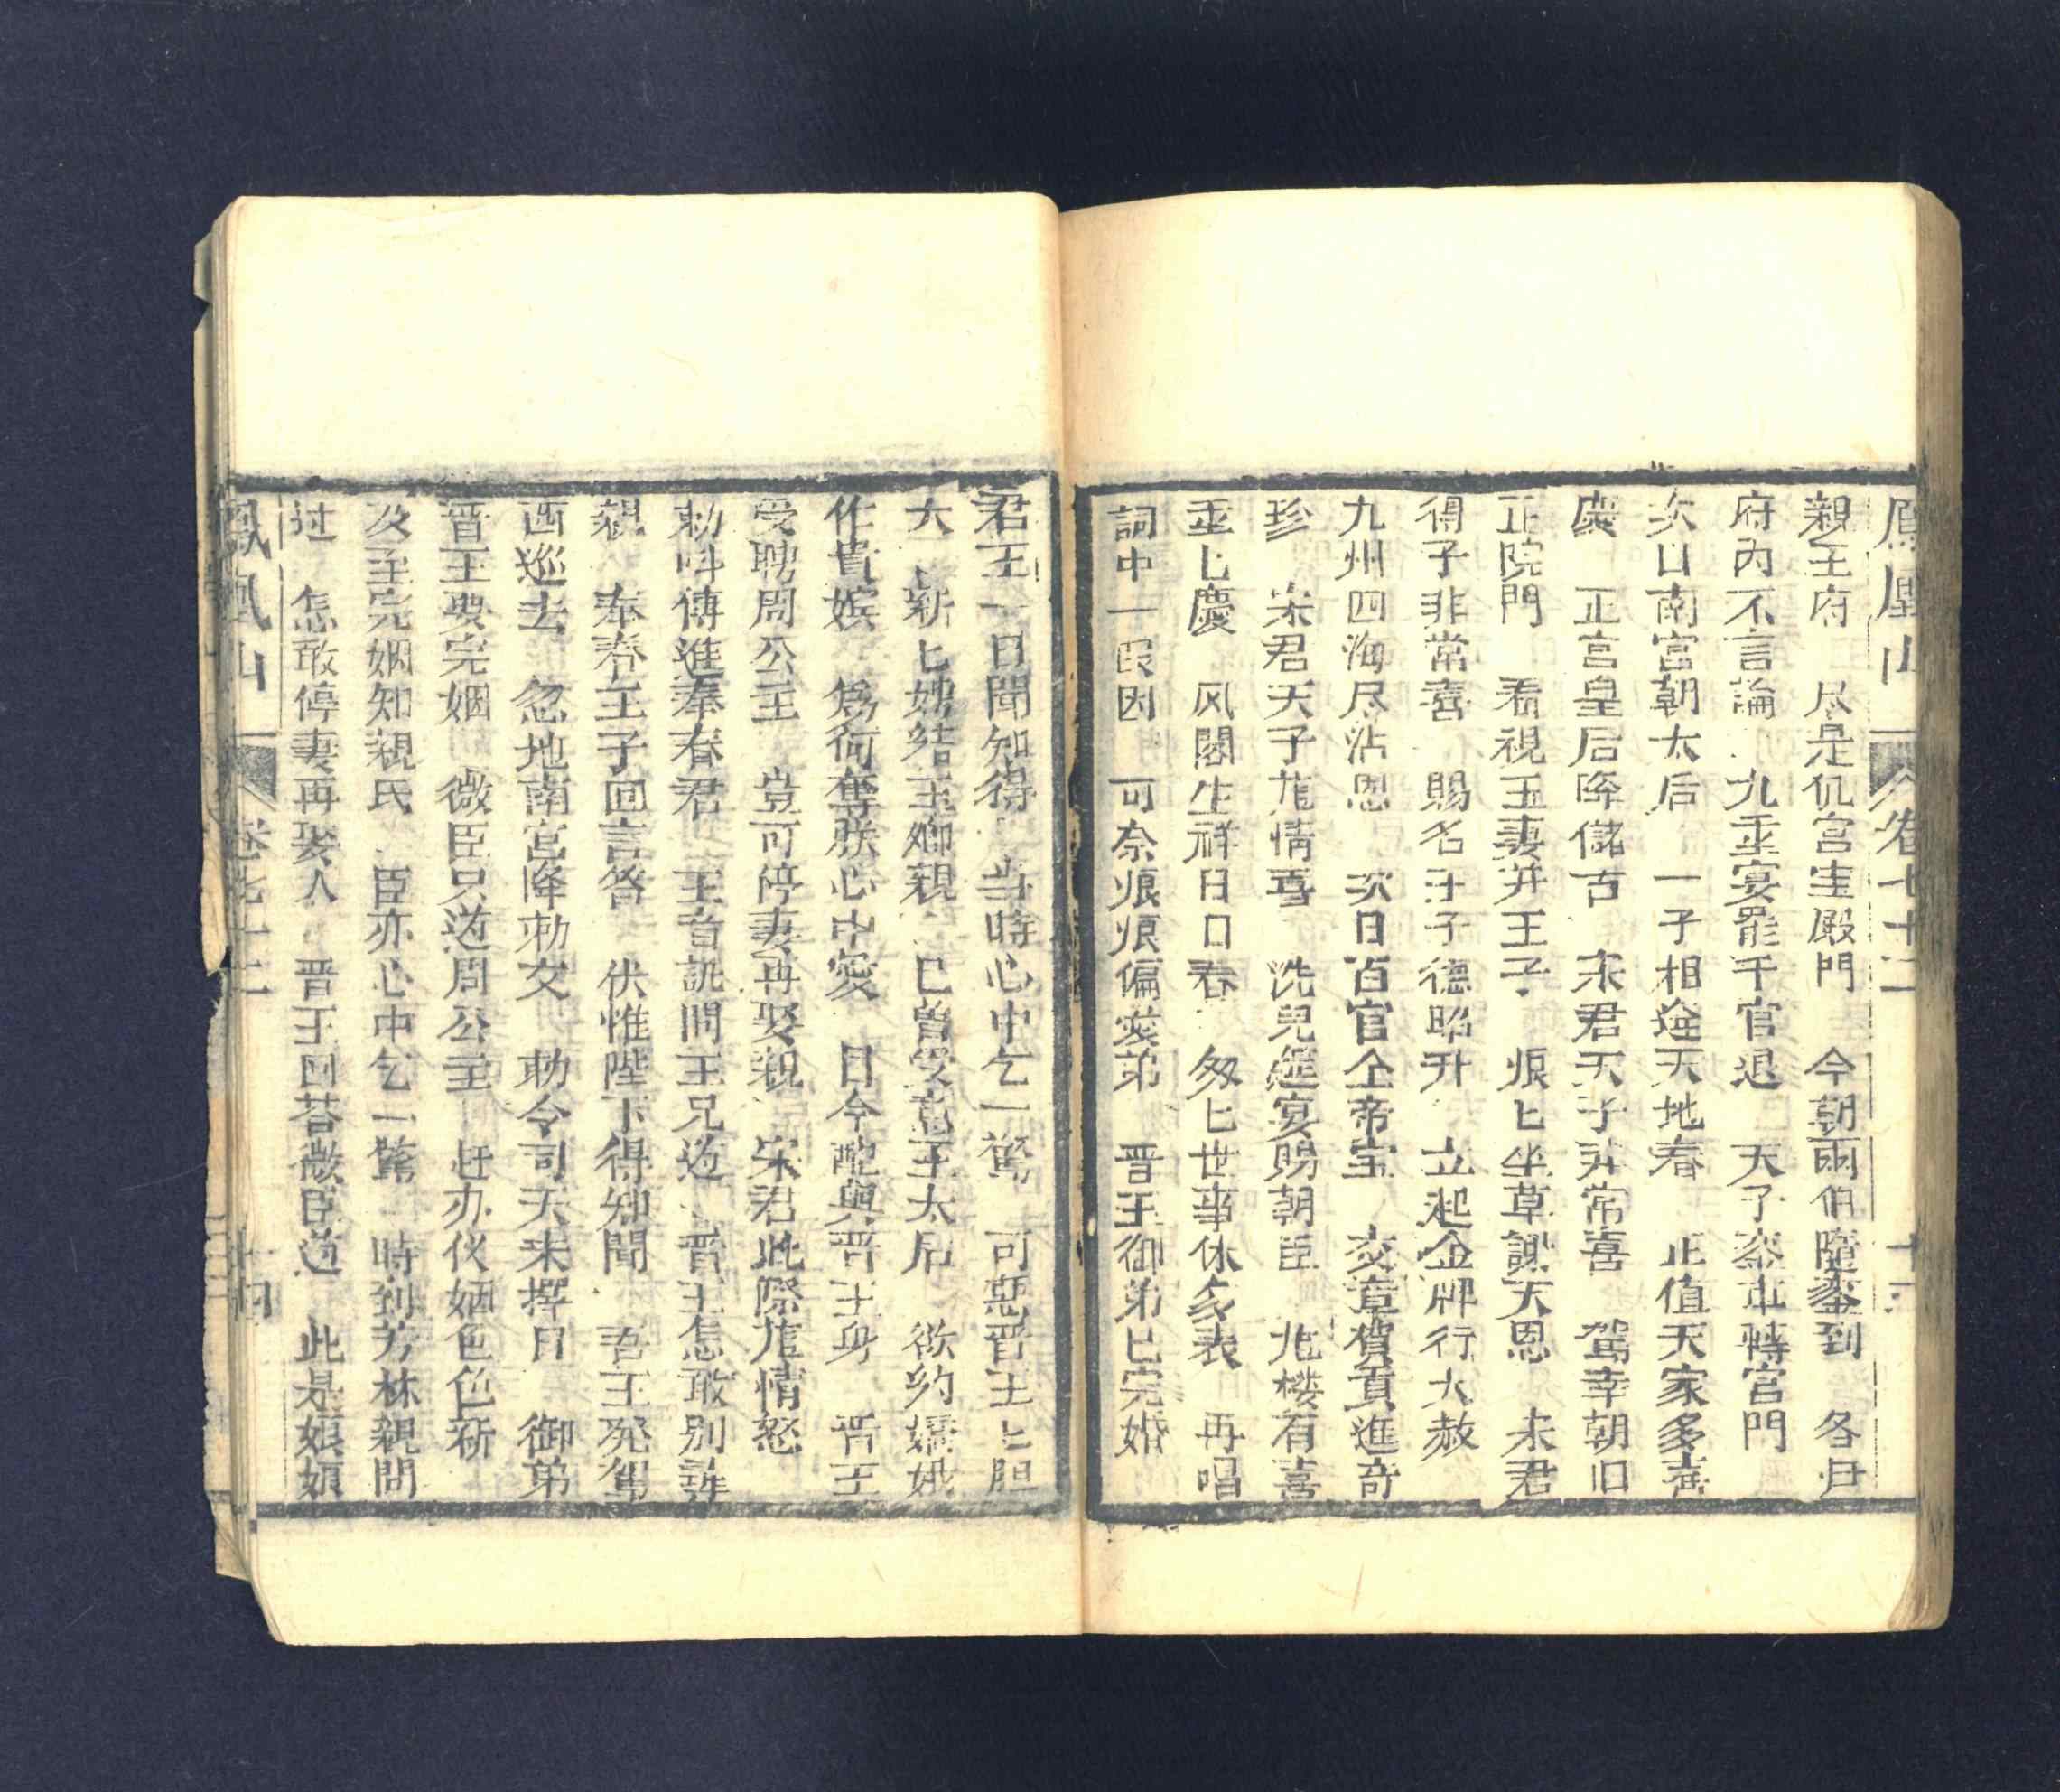 鳳凰山 卷七十二 十三
親王府 尽是仉宮宝殿門 今朝兩伯隨鑾到 各尹
府內不言論 九重宴罷千官退 天子鑾車轉宮門
次日南宮朝太后 一子相逢天地春 正值天家多喜
慶 正宮皇后降儲君 宋君天子非常喜 駕幸朝旧
正院門 看視玉妻并王子 娘匕坐草謝天恩 宋君
得子非常喜 賜名王子德昭升 立起金牌行大赦
九州四海尽沾恩 次日百官仝帝宝 交章賀貢進奇
珍 宋君天子龙情喜 洗兒筵宴賜朝臣 兆楼有喜
重匕慶 风閣生祥日日春 匆匕世事休多表 再唱
詞中一段因 可奈娘娘偏愛弟 晋王御弟已完婚
君王一日聞知得 当時心中乞一驚 可惡晋王匕胆
大 新匕姊結王鄉親 已曾受意王太后 欲約嬌娥
作貴嬪 為何奪朕心中愛 日今配與晋王身 晋王
受聘周公主 豈可停妻再娶親 宋君此際龙情怒
勅叫傳進奉春君 玉音訊問王兄道 晋王怎敢別許
親 奉春王子回言答 伏惟陛下得知聞 吾王発駕
西巡去 忽地南宮降勅文 勅令司天来擇日 御弟
晋王要完姻 微臣只道周公主 赶办仪姻色色新
及至完姻知親氏 臣亦心中乞一驚 時到芳林親問
过 怎敢停妻再娶人 晋王回荅微臣道 此是娘娘
鳳凰山 卷七十二 十四